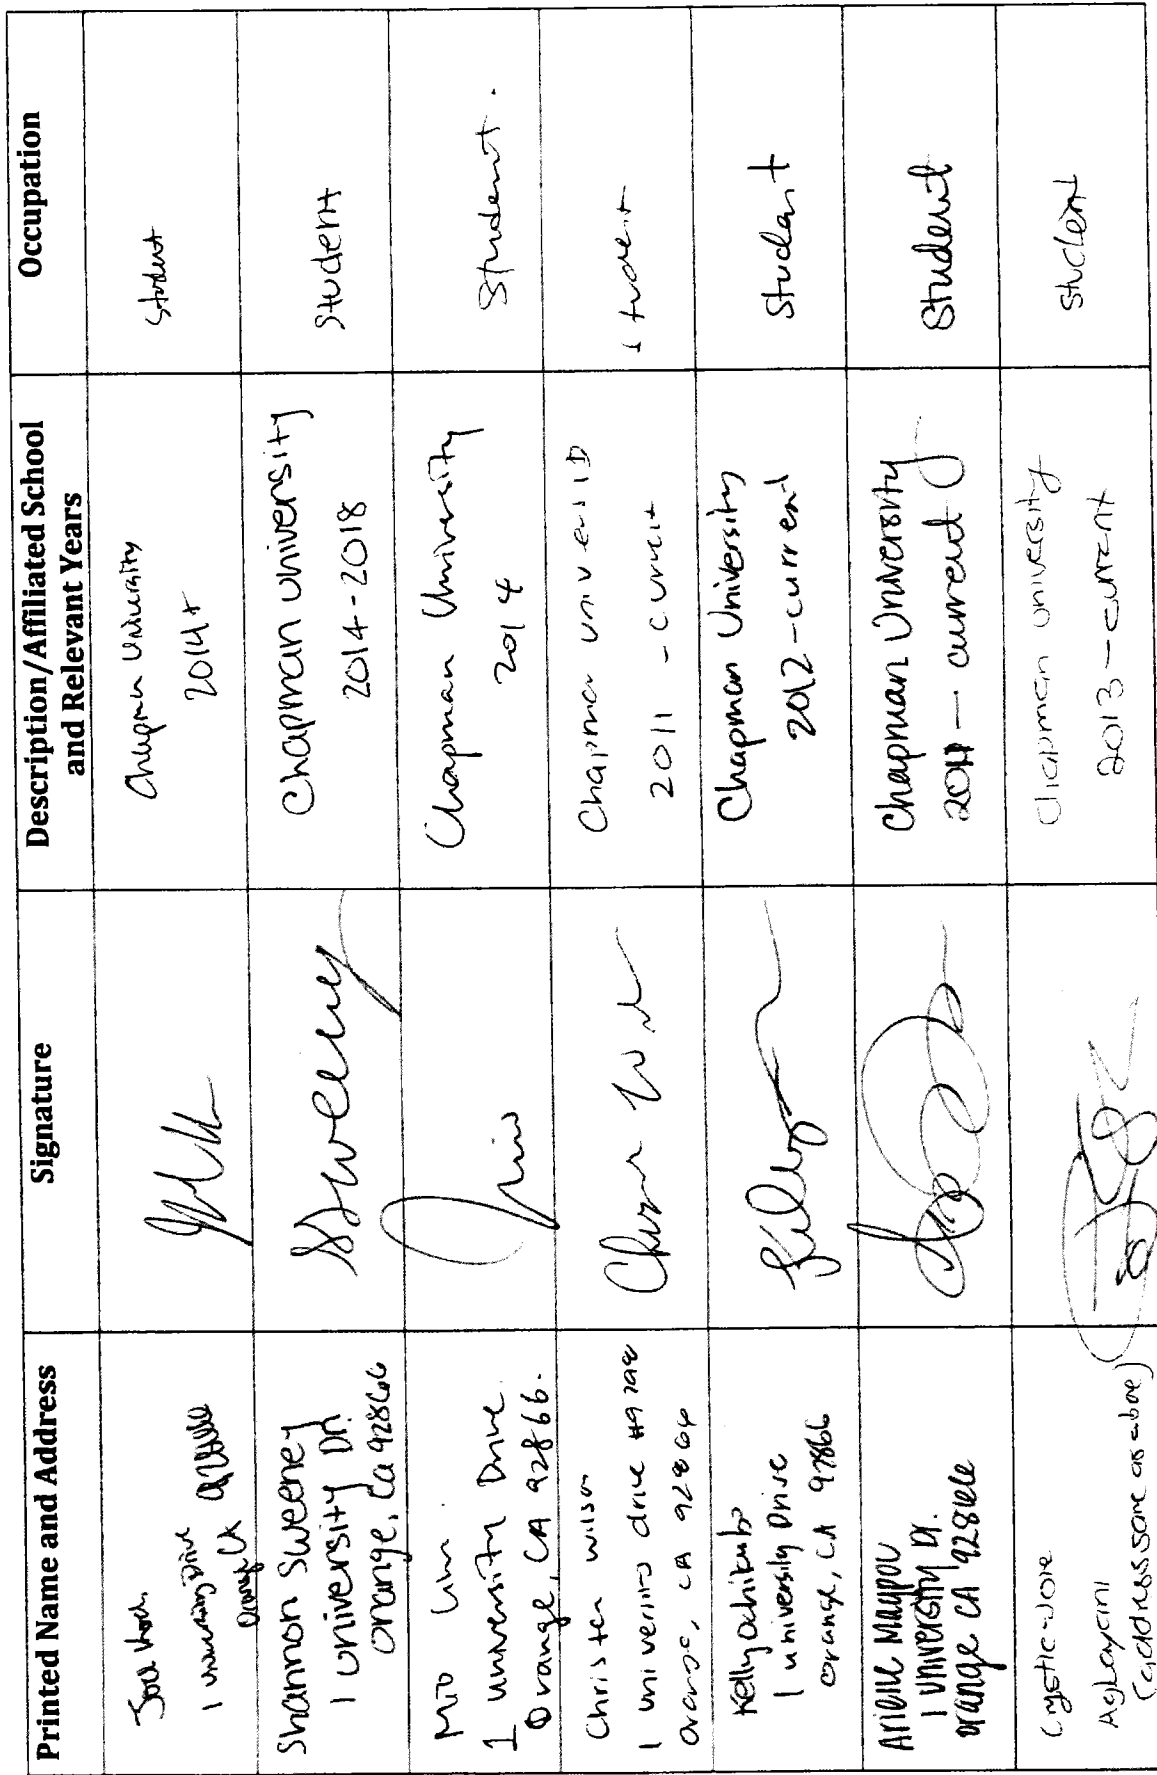 Printed Name and Address
Signature
Description/Affiliated School
and Relevant Years
Occupation
1 University Drive
Orange, CA 92866
Chapman University
2014+
Student
Shannon Sweeney
1 University Dr.
Orange, Ca 92866
SSweeney
Chapman University
2014-2018
Student
Mio
1 University Drive.
Orange, CA 92866.
Mio
Chapman University
2014
Student.
Christen Wilson
1 University drive #9798
Orange, CA 92866
Chapman University
2011 - current
student
Kelly Ochikubo
1 University Drive
Orange, CA 92866
Kelly
Chapman University
2012-current
Student
Arielle
1 University Dr.
Orange CA 92866
Chapman University
2011 - current
Student
Crystie-Jone
(address same as above)
Chapman University
2013-current
Student